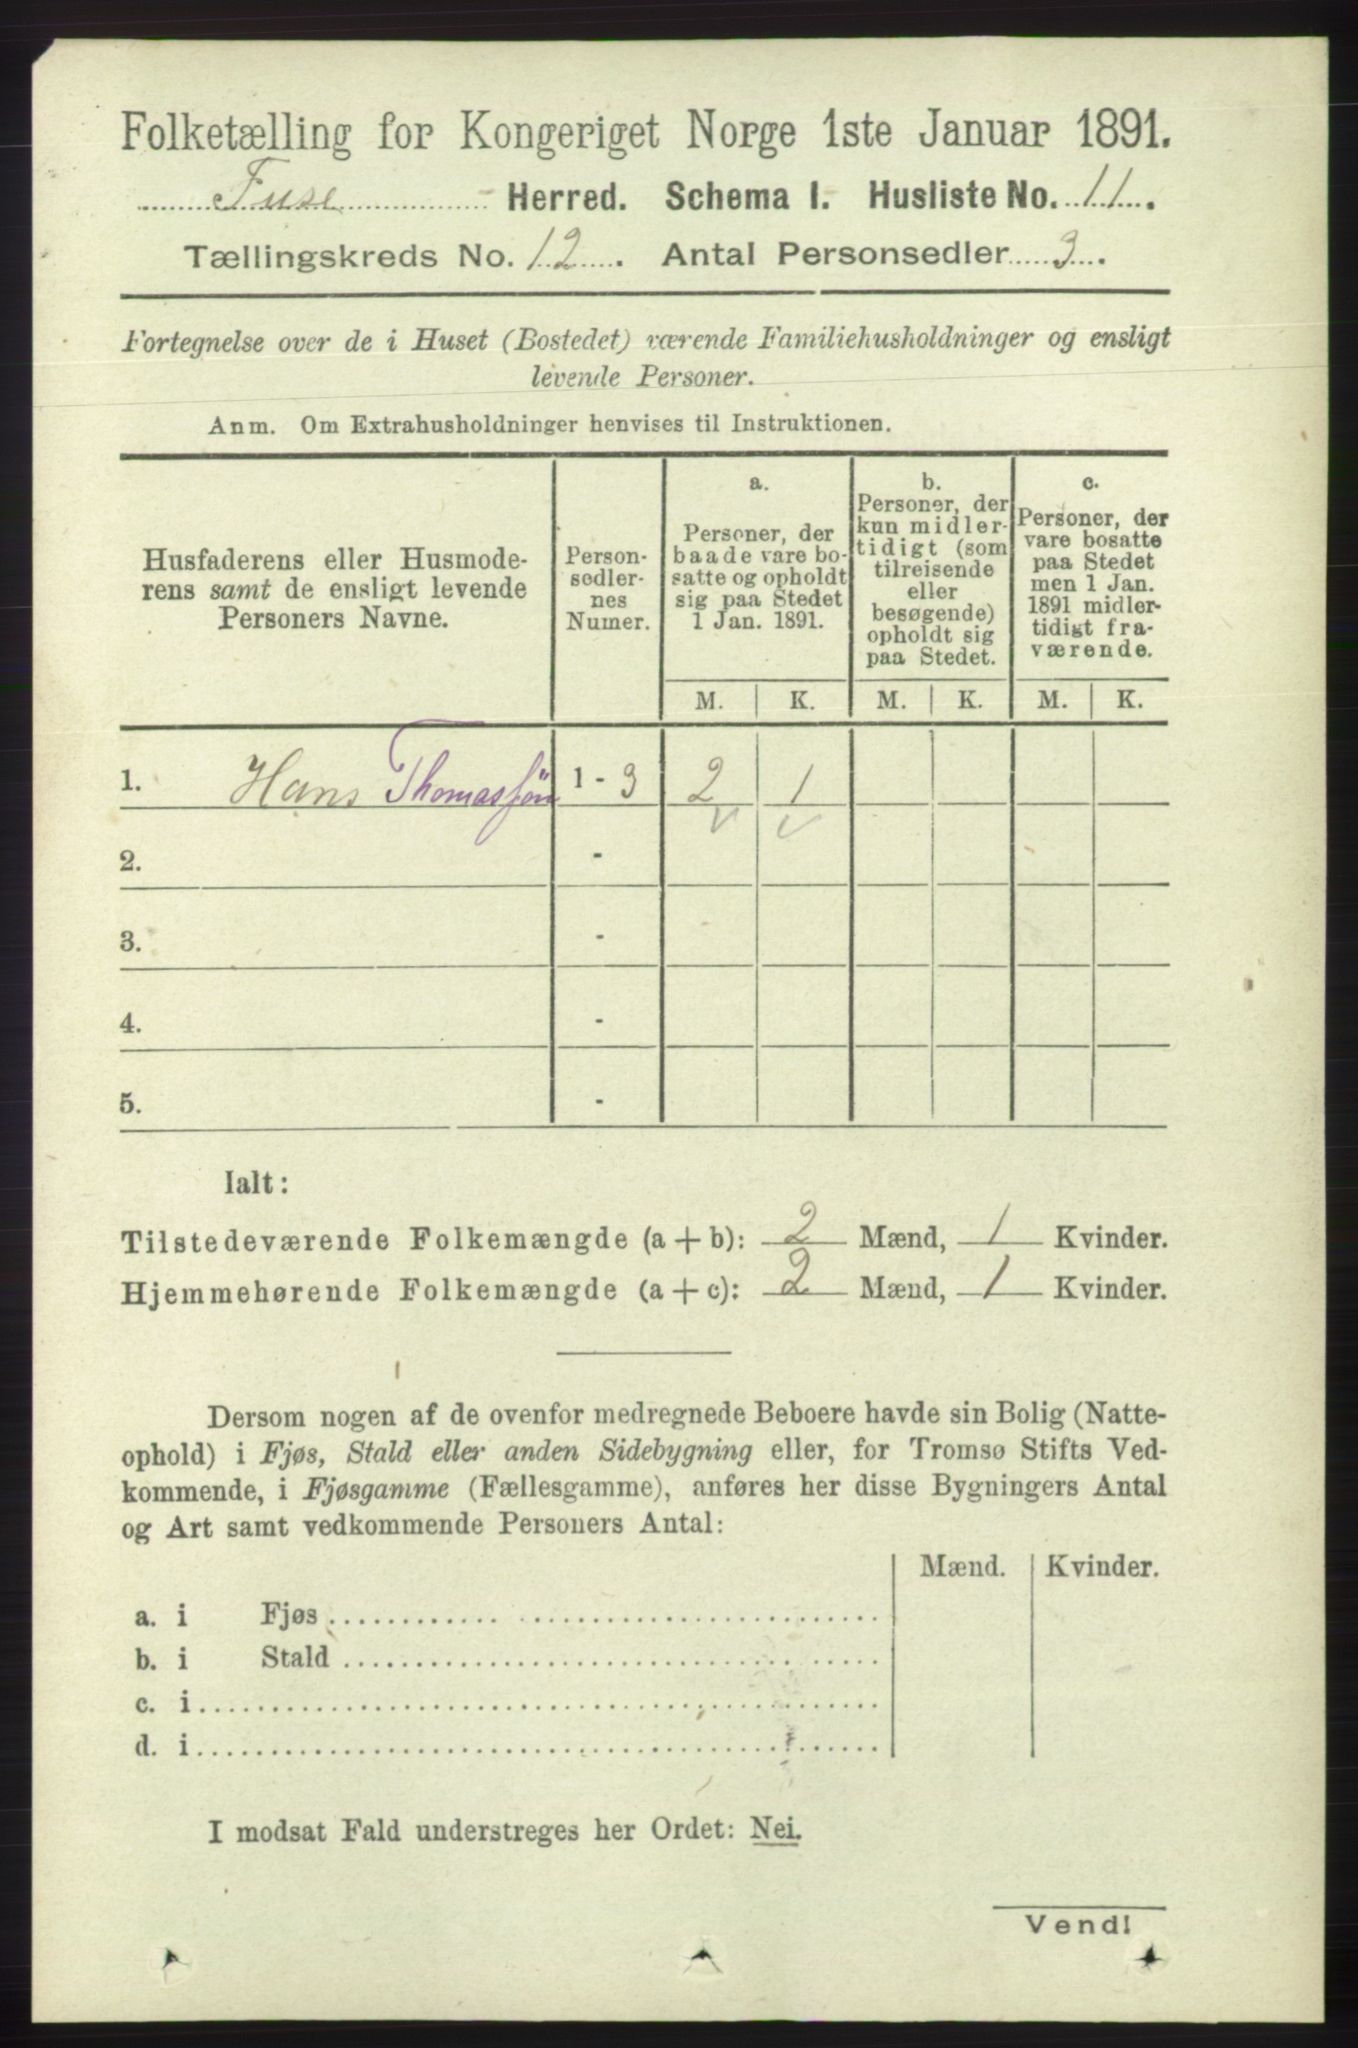 Folketælling for Kongeriget Norge 1ste Januar 1891.
Fuse Herred. Schema I. Husliste No. 11.
Tællingskreds No. 12. Antal Personsedler 3.
Fortegnelse over de i Huset (Bostedet) værende Familiehusholdninger og ensligt
levende Personer.
Anm. Om Extrahusholdninger henvises til Instruktionen.
Husfaderens eller Husmode-
rens samt de ensligt levende
Personers Navne.
Person-
sedler-
nes
Numer.
a.
Personer, der
baade vare bo-
satte og opholdt
sig paa Stedet
1 Jan. 1891.
b.
Personer, der
kun midler-
tidigt (som
tilreisende
eller
besøgende)
opholdt sig
paa Stedet.
c.
Personer, der
vare bosatte
paa Stedet
men 1 Jan.
1891 midler-
tidigt fra-
værende.
M. K. M. K. M. K.
1. Hans Thomassön 1 - 3 2 1
2. -
3. -
4. -
5. -
Ialt:
Tilstedeværende Folkemængde (a + b): 2 Mænd, 1 Kvinder.
Hjemmehørende Folkemængde (a + c): 2 Mænd, 1 Kvinder.
Dersom nogen af de ovenfor medregnede Beboere havde sin Bolig (Natte-
ophold) i Fjøs, Stald eller anden Sidebygning eller, for Tromsø Stifts Ved-
kommende, i Fjøsgamme (Fællesgamme), anføres her disse Bygningers Antal
og Art samt vedkommende Personers Antal:
Mænd. Kvinder.
a. i Fjøs
b. i Stald
c. i
d. i
I modsat Fald understreges her Ordet: Nei.
Vend!